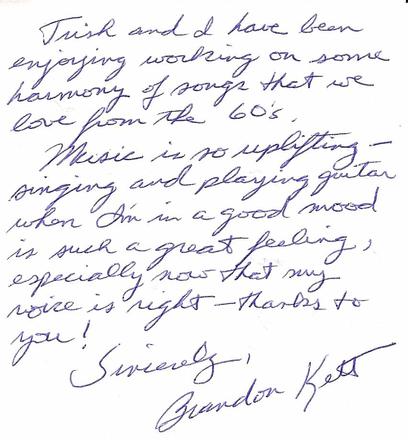 Trish and I have been
enjoying working on some
harmony of songs that we
love from the 60's.
Music is so uplifting -
singing and playing guitar
when I'm in a good mood
is such a great feeling,
especially now that my
voice is right - thanks to
you!
Sincerely,
Brandon Kett